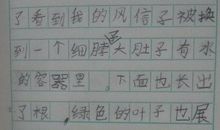 了看到我的风信子被换
到一个细脖大肚子有水
的容器里，下面也长出
了根，绿色的叶子也展